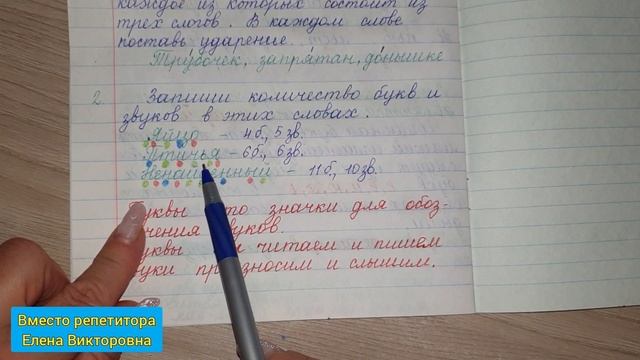 каждое из которых состоит из
трёх слогов. В каждом слове
поставь ударение.
Тру́бочек, запря́тан, до́нышке
2. Запиши количество букв и
звуков в этих словах.
Яйцо - 4б, 5 зв.
Птичья - 6б., 6зв.
Ненайденный - 11б, 10зв.
Буквы это значки для обоз-
начения звуков.
Буквы читаем и пишем
звуки произносим и слышим.
Вместо репетитора
Елена Викторовна